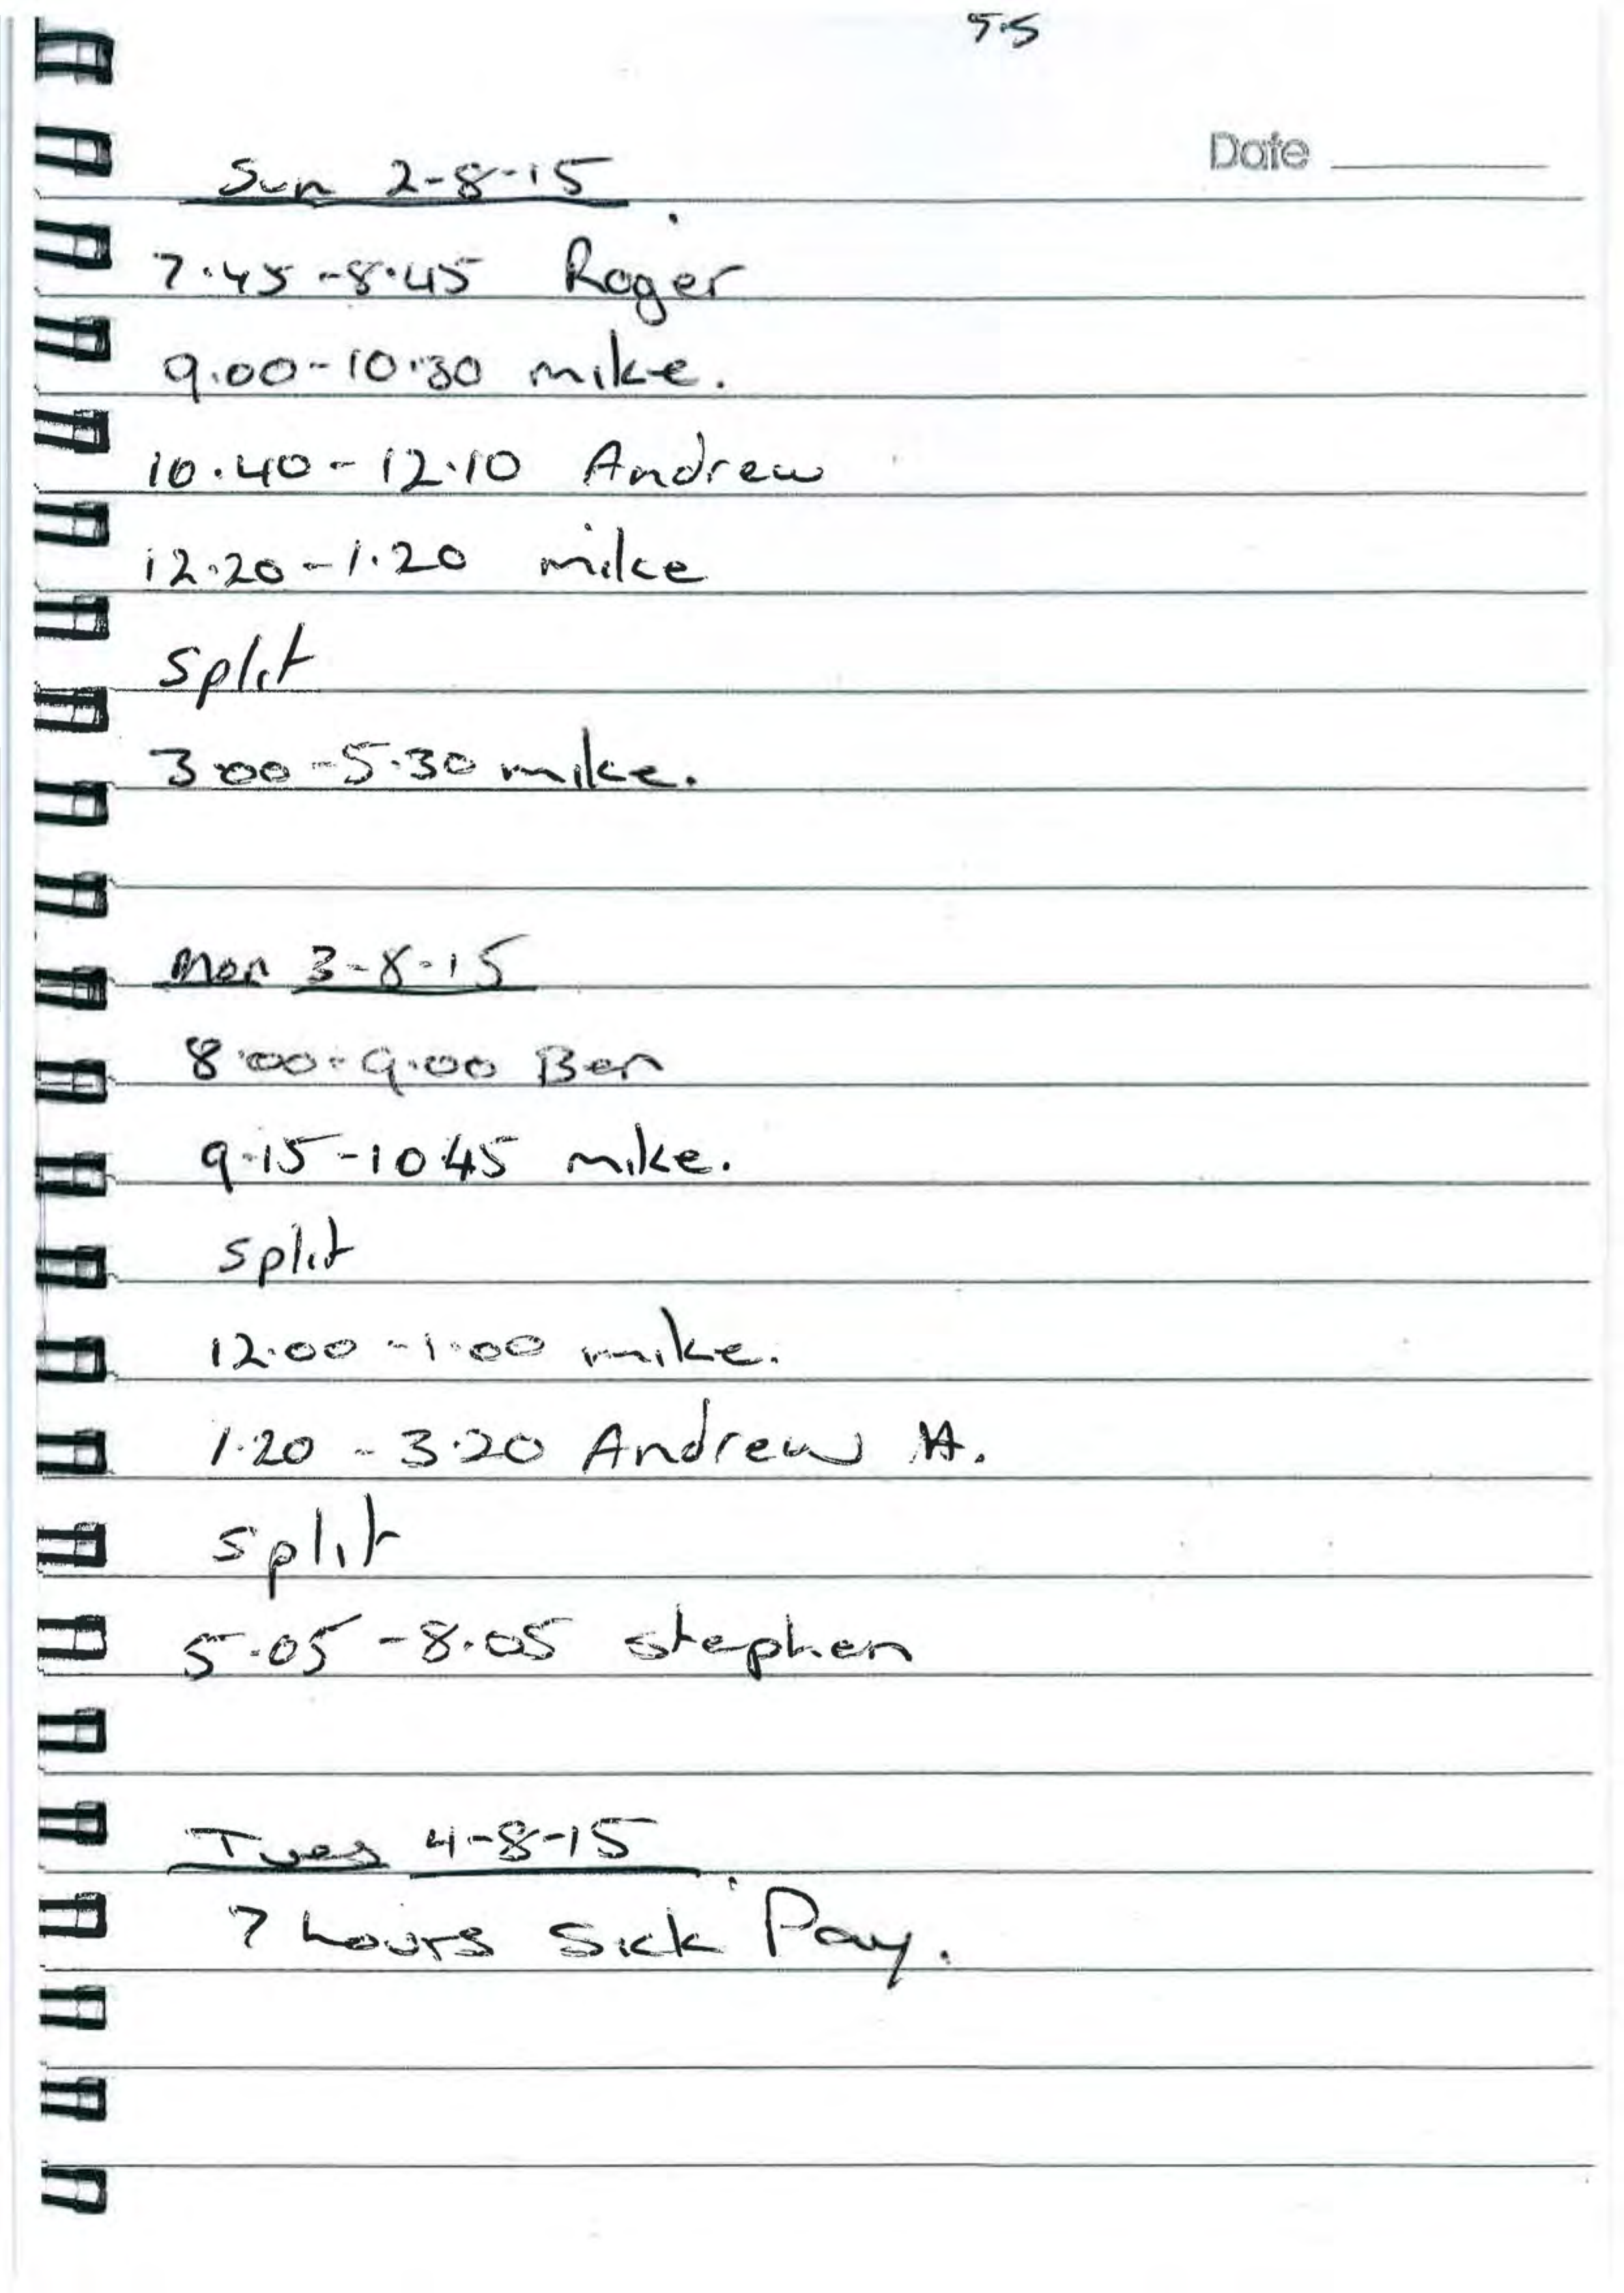 5.5
Date
Sun 2-8-15
7.45-8.45 Roger
9.00-10.30 mike.
10.40-12.10 Andrew
12.20-1.20 mike
split
3.00-5.30 mike.
Mon 3-8-15
8.00-9.00 Ben
9.15-10.45 mike.
split
12.00-1.00 mike.
1.20-3.20 Andrew H.
split
5.05-8.05 stephen
Tues 4-8-15
7 hours Sick Pay.